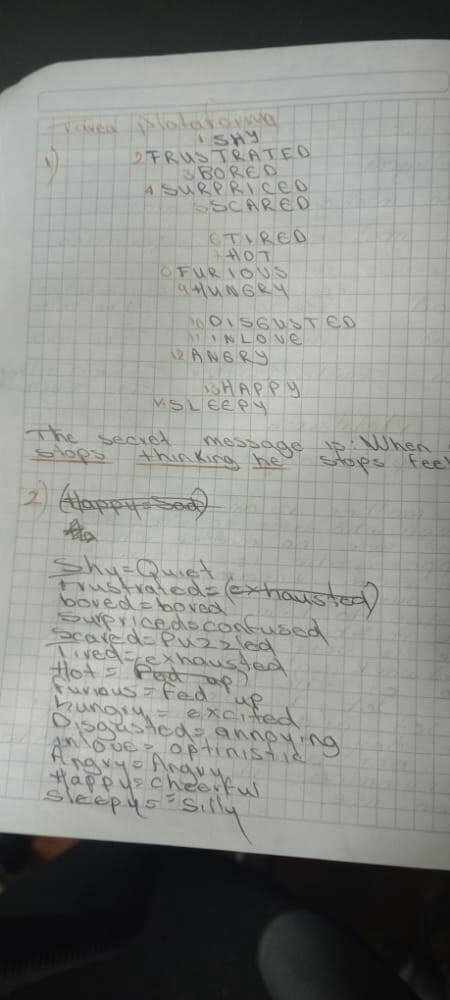 Tarea plataforma
1) 1 SHY
2 FRUSTRATED
3 BORED
4 SURPRICED
5 SCARED
6 TIRED
7 HOT
8 FURIOUS
9 HUNGRY
10 DISGUSTED
11 INLOVE
12 ANGRY
13 HAPPY
14 SLEEPY
The secret message is: When
stops thinking he stops feel
2) (Happy=Sad)
Shy=Quiet
frustrated=(exhausted)
bored=bored
Surpriced=confused
Scared=Puzzled
Tired=(exhausted)
Hot= Fed up)
Furious=Fed up
hungry= excited
Disgusted=annoying
inlove= optinistic
Angry=Angry
Happy=cheerful
Sleepy==Silly